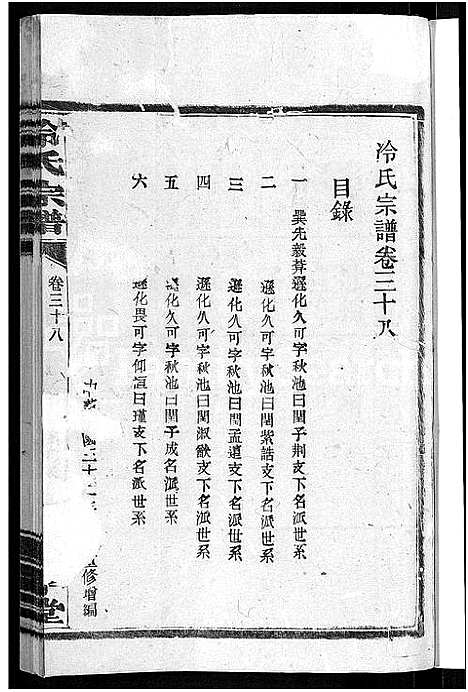 冷氏宗譜卷三十八
目錄
一 巽先毅葬遜化久可字秋池曰閨子荆支下名派世系
二 遜化久可字秋池曰閨紫誥支下名派世系
三 遜化久可字秋池曰閨孟道支下名派世系
四 遜化久可字秋池曰閨淑猷支下名派世系
五 遜化久可字秋池曰閨子成名派世系
六 遜化畏可字仰宣曰瑾支下名派世系
冷氏宗譜
卷三十八
國三十
修增編
堂